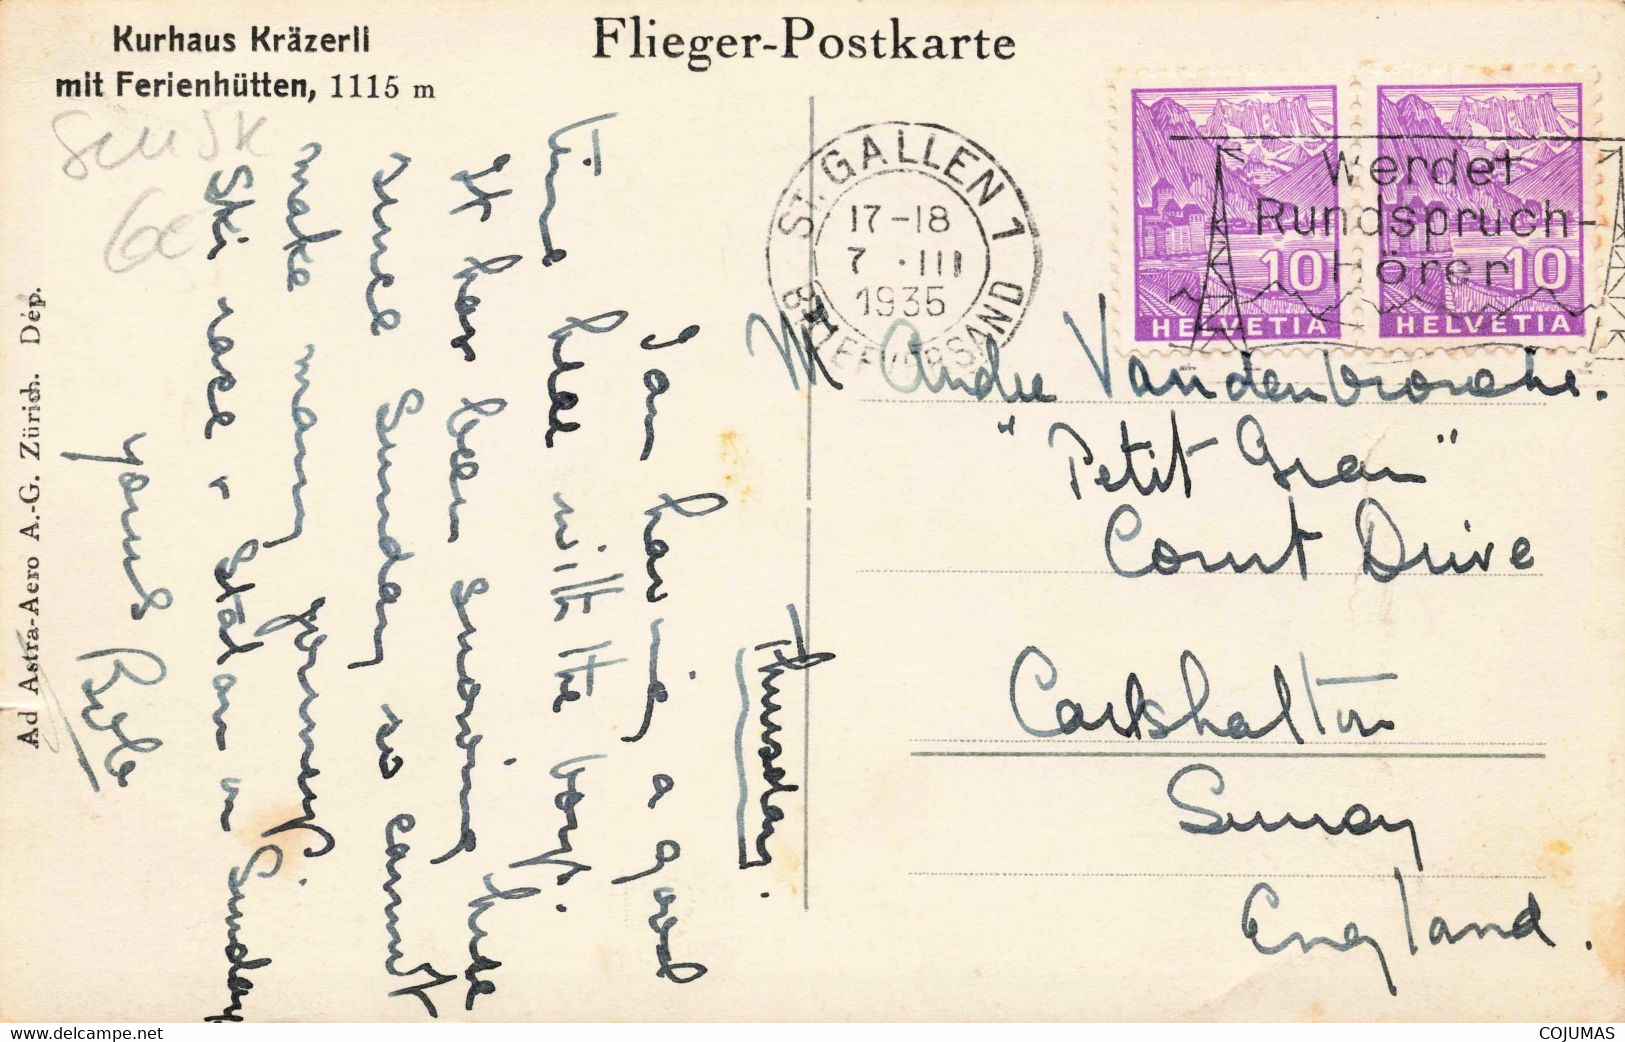 Kurhaus Kräzerli
mit Ferienhütten, 1115 m
Flieger-Postkarte
ST. GALLEN 1
17-18
7 .III
1935
BRIEFVERSAND
Werdet
Rundspruch-
Hörer
10
HELVETIA
10
HELVETIA
Ad Astra-Aero A.-G. Zürich. Dép.
Thursday.
I am having a good
time here with the boys.
It has been snowing here
since Sunday so cannot
make many
Ski race Sunday
yours
M Andre
"Petit
Court Drive
Carshalton
Surrey
England.
COJUMAS